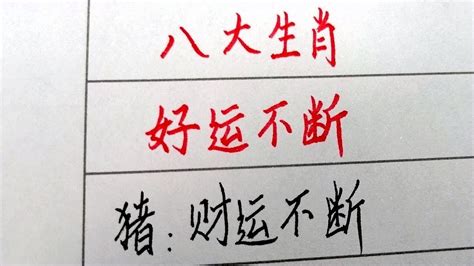 八大生肖
好运不断
猪:财运不断